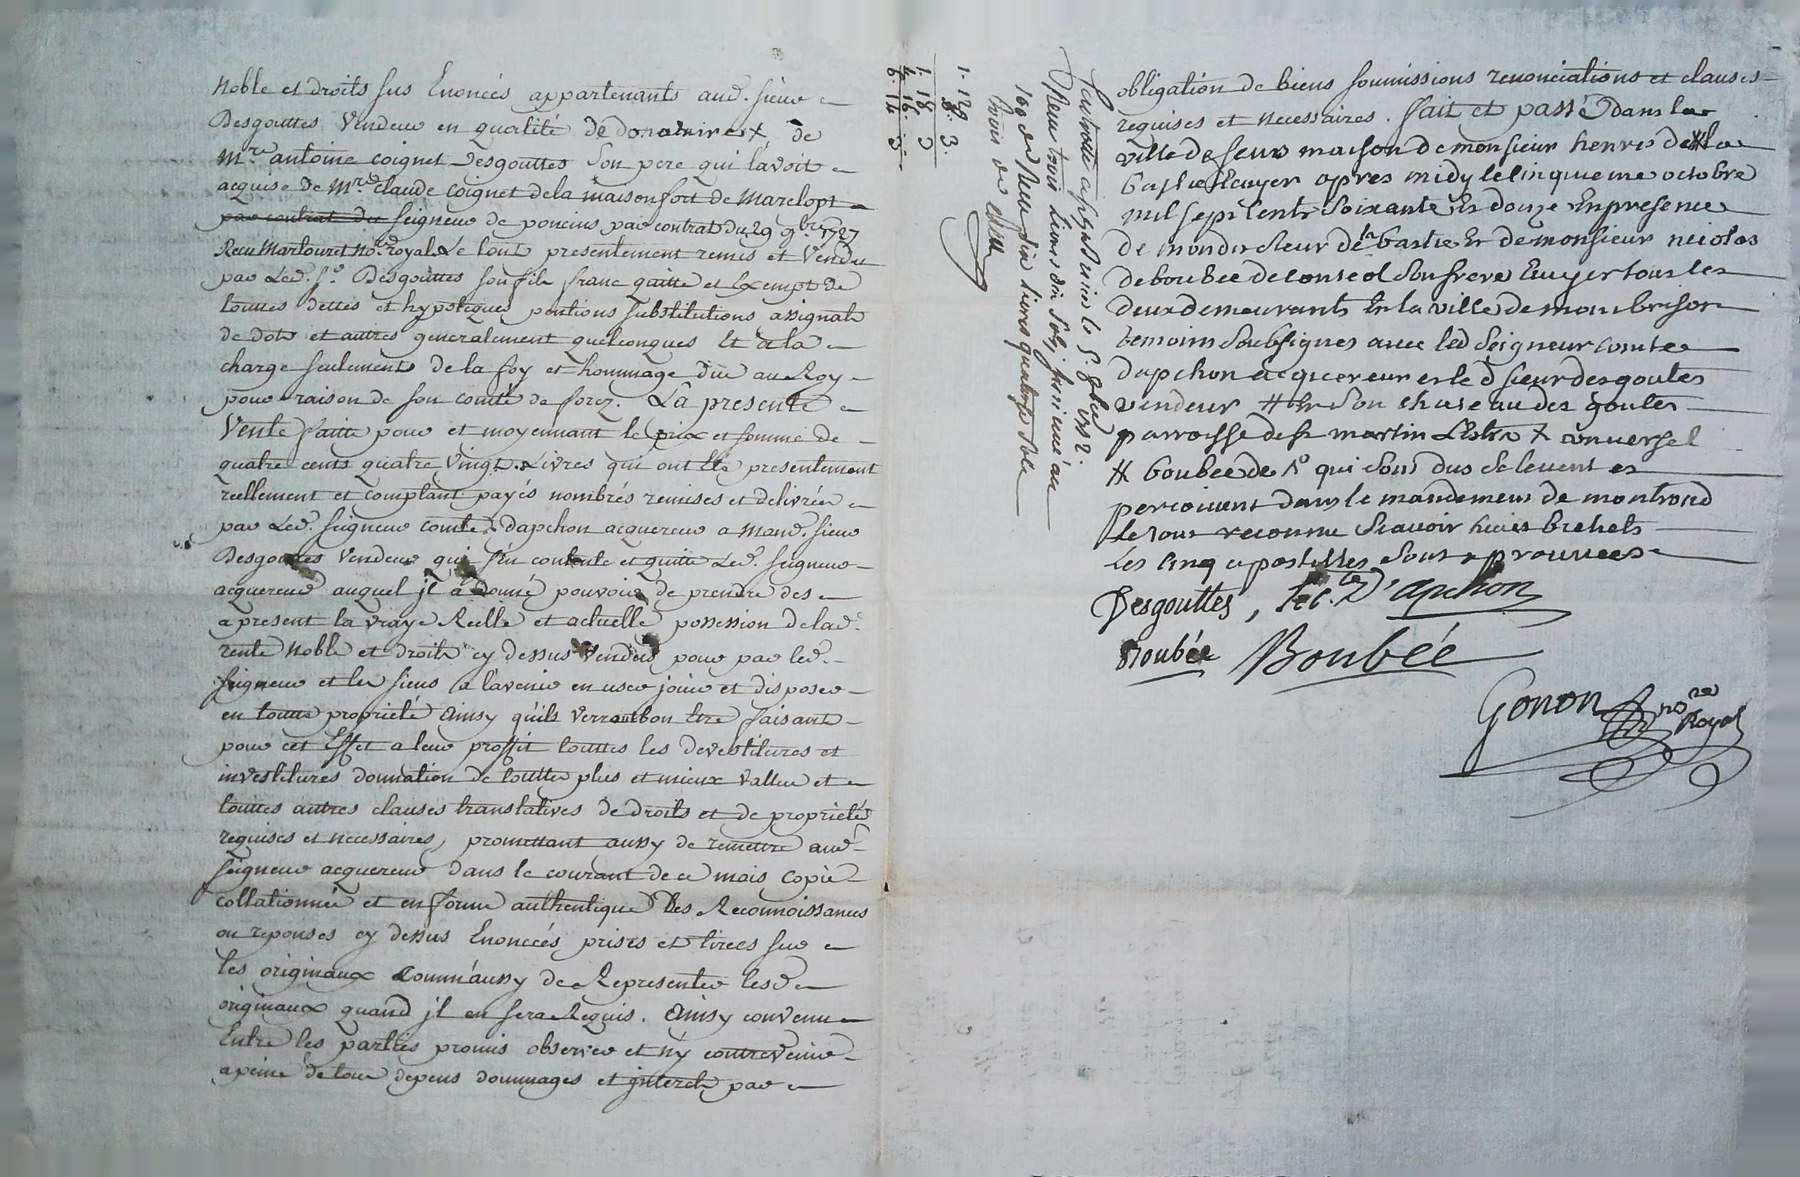 Noble et droits sus Enoncés appartenants aud. sieur
Desgouttes Vendeur en qualité de donataire X de
Mre. antoine coignet Desgouttes son pere qui l'avoit
acquise de Mre claude Coignet de la maison fort de Marclopt
par contrat du seigneur de poncins par contrat du 29 9bre. 1727
Recu Martouret Nore. royal Le tout presentement remis et Vendu
par Led. sr. Desgouttes son fils franc quitte et Exempt de
touttes dettes et hypoteques pentions substitutions assignats
de dots et autres generalement quelconques Et a la
charge seulement de la foy et hommage düe au Roy
pour raison de son comté de forez. La presente
Vente faitte pour et moyennant le prix et somme de
quatre cents quatre Vingt Livres qui ont Eté presentement
reellement et comptant payés nombrés remises et delivrées
par Led. seigneur comte d'apchon acquereur a mond. sieur
Desgouttes Vendeur qui s'en contente et quitte Led. seigneur
acquereur auquel jl a donné pouvoir de prendre des
a present la vraye Reelle et actuelle possession de lad.
rente Noble et droits cy dessus Vendus pour par led.
seigneur et les siens a l'avenir en user jouir et disposer
en toutte proprieté Ainsy qu'ils Verront bon Etre faisant
pour cet Effet a leur proffit touttes les devestitures et
investitures donnation de touttes plus et mieux Vallue et
touttes autres clauses translatives de droits et de proprieté
requises et necessaires, promettant aussy de remettre aud.
seigneur acquereur dans le courant de ce mois Copie
collationnée et en forme authentique Des Reconnoissances
ou reponses cy dessus Enoncées prises et tirées sur
les originaux comm'aussy de Representer lesd.
originaux quand jl en sera Requis. Ainsy convenu
Entre les parties promis observer et n'y contrevenir
a peine de tous depens dommages et jnterets par
1. 12. 3.
1. 18. 3
4. 16.
6. 14. 3
9bre 1772.
neuf livres dix sols
livres quatorze sols
trois d
obligation de biens soumissions renonciations et clauses
requises et necessaires. fait et passé dans la
ville de feurs maison de monsieur henris de la
bastie Ecuyer apres midy le cinquieme octobre
mil sept cents soixante Et douze En presence
de mondit sieur de la bastie Et de monsieur nicolas
de boubée de son frere Ecuyer tous les
deux demeurants En la ville de montbrison
temoins soubsignes avec led Seigneur comte
dapchon acquereur et le d sieur desgouttes
vendeur # En son chateau des goutes
parroisse de st martin Lestra X
# boubée de qui sont dus se levent et
percoivent dans le mandement de montrond
Le tout reconnu scavoir
Les cinq apostilles sont aprouvees
Desgouttes, Le Cte D'apchon
Boubée Boubée
Gonon nore
Royal